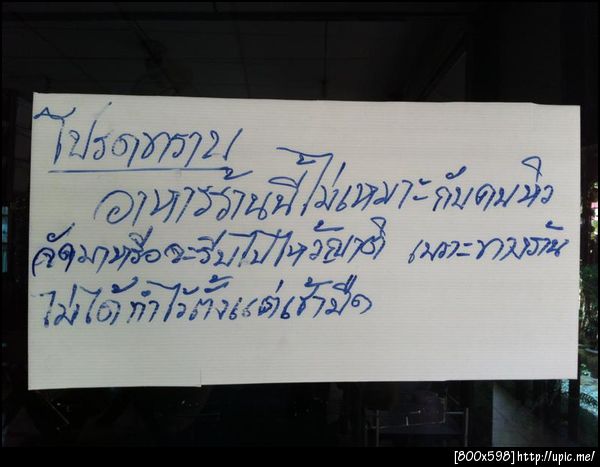 โปรดทราบ
อาหารร้านนี้ไม่เหมาะกับคนหิว
จัดมาหรือจะรีบไปไหว้ญาติ เพราะทางร้าน
ไม่ได้ทำไว้ตั้งแต่เช้ามืด
[800x598]http://upic.me/